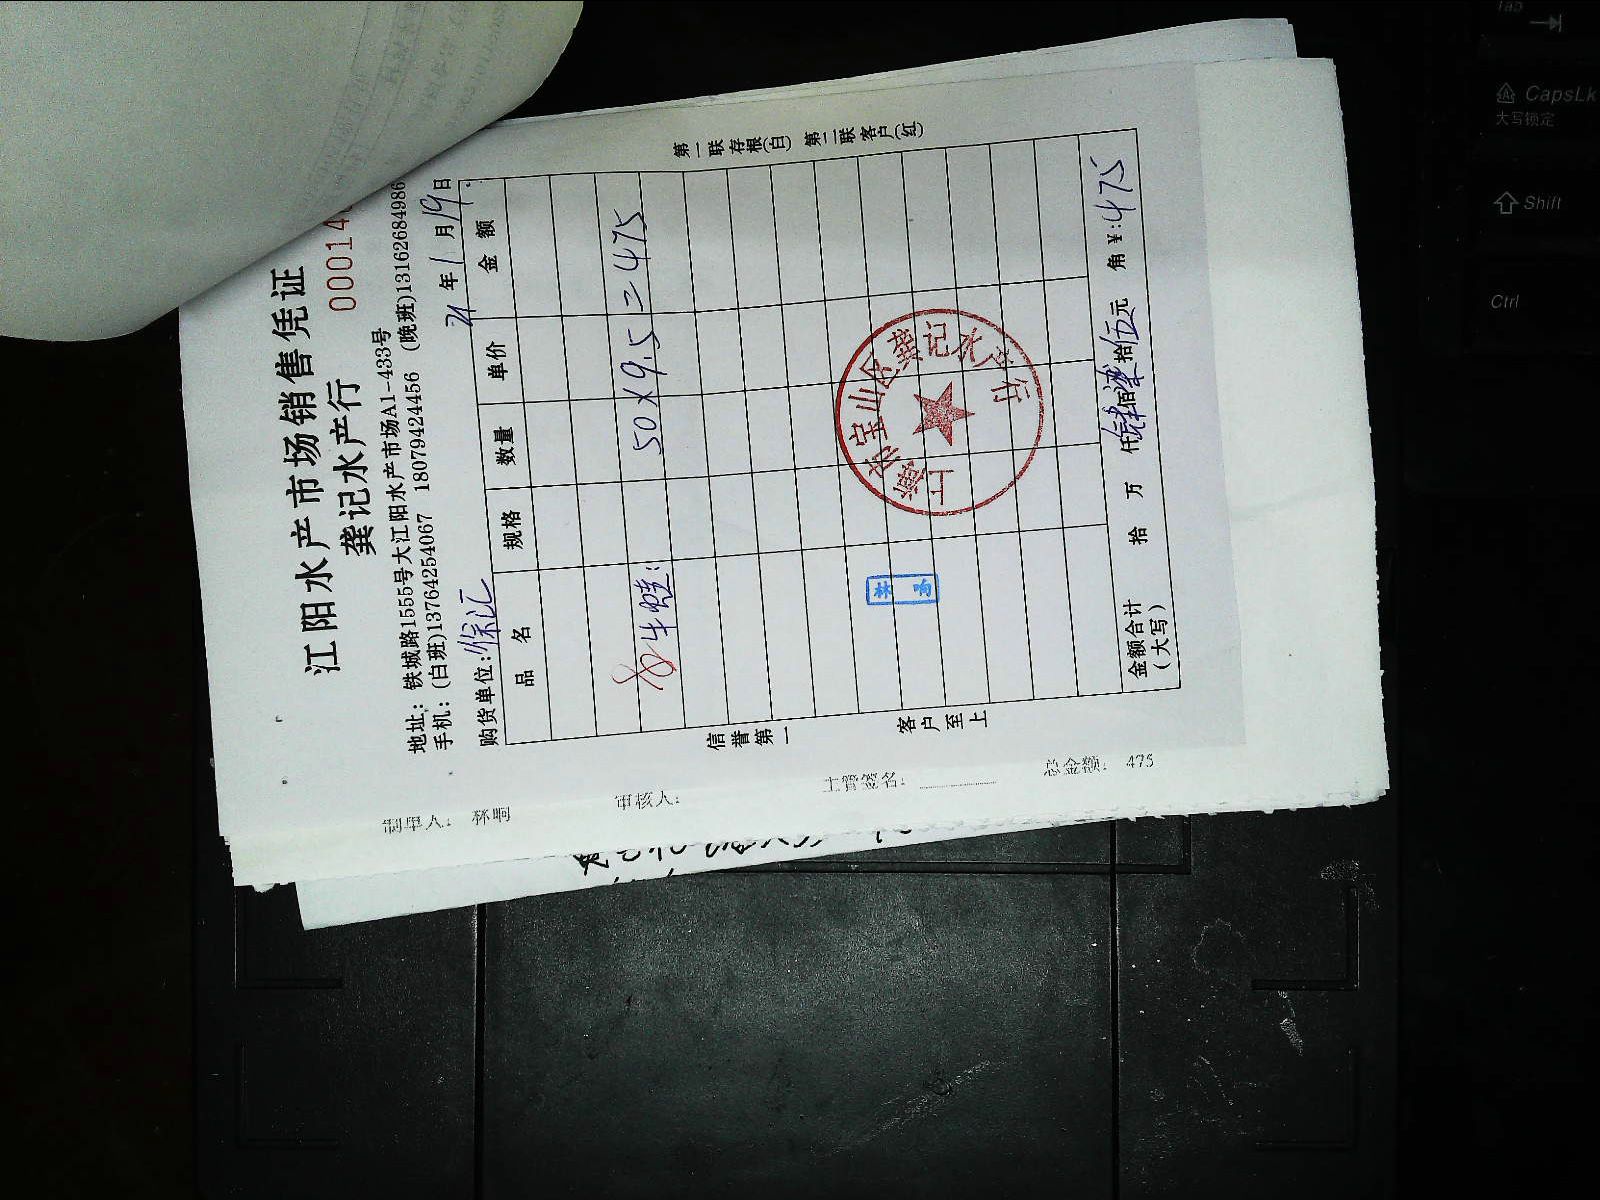 江阳水产市场销售凭证
龚记水产行
00014
地址：铁城路1555号大江阳水产市场A1-433号
手机：(白班)13764254067 18079424456 (晚班)13162684986
购货单位：徐汇
21年1月19日
品名 规格 数量 单价 金额
牛蛙：
50×9.5=475
上海市宝山区龚记水产行
金额合计（大写） 拾 万 仟肆佰柒拾伍元 角 ¥:475
第一联存根(白) 第二联客户(红)
信誉第一
客户至上
制单人：
审核人：
主管签名：
总金额： 475
Tab
CapsLk
大写锁定
Shift
Ctrl